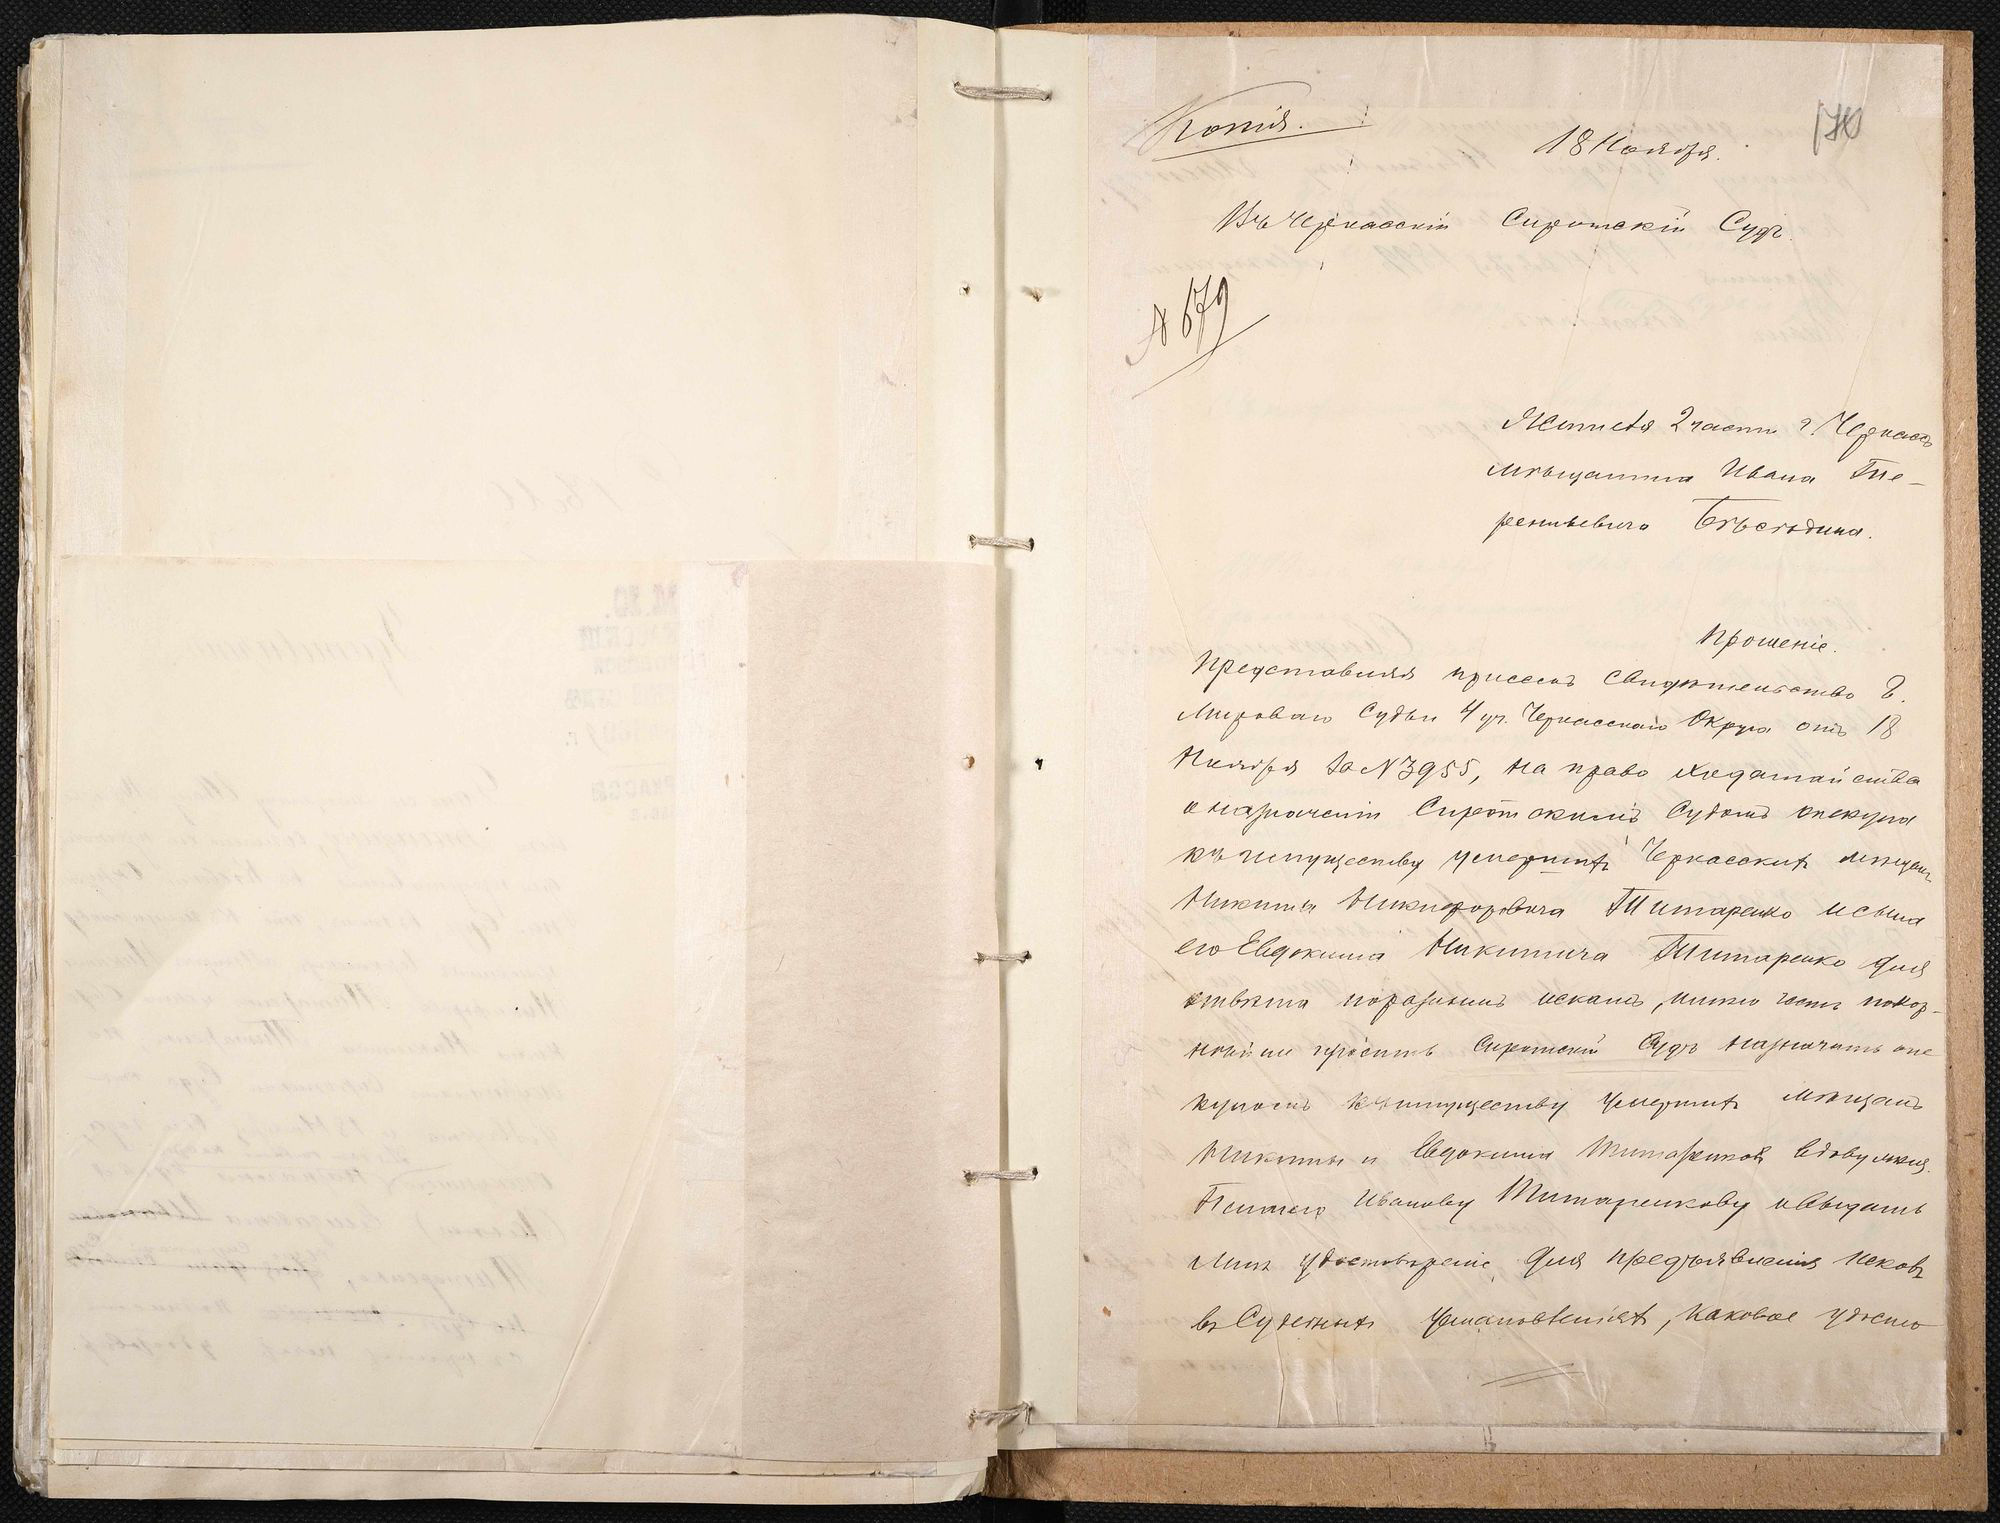 Копія.
18 Ноября.
Въ Черкасскій Сиротскій Судъ.
№ 679
Жителя 2 части г. Черкассъ
мѣщанина Ивана Те-
рентьевича Бѣсѣдина.
Прошеніе.
Представляя присемъ свидѣтельство Г.
Мироваго Судьи 4 уч. Черкасскаго Округа отъ 18
Ноября за N 3955, на право ходатайства
о назначеніи Сиротскимъ Судомъ опекуна
къ имуществу умершихъ Черкасскихъ мѣщанъ
Никиты Никифоровича Титаренко и сына
его Евдокима Никитича Титаренко для
отвѣта по разнымъ искамъ, имѣю честь покор-
нѣйше просить Сиротскій Судъ назначить опе
куномъ къ имуществу умершихъ мѣщанъ
Никиты и Евдокима Титаренковъ вдову
Иванову Титаренкову и выдать
мнѣ удостовѣреніе для предъявленія исковъ
въ Судебныхъ Установленіяхъ, каковое удосто